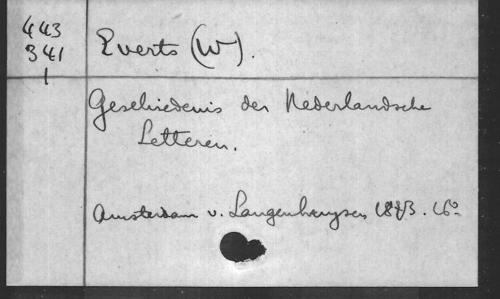 443
341
1
Everts (W).
Geschiedenis der Nederlandsche
Letteren.
Amsterdam v. Langenhuysen 16°